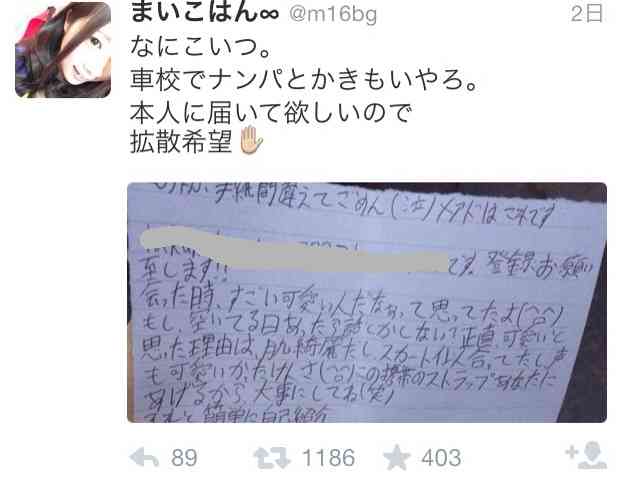 まいこはん∞ @m16bg 2日
なにこいつ。
車校でナンパとかきもいやろ。
本人に届いて欲しいので
拡散希望✋
手紙間違えてごめん(泣)メアドはこれです
です。登録お願い
至します!!
会った時、すごい可愛い人だなぁって思ってたよ(^o^)
もし、空いてる日あったら話しかしない?正直、可愛いと
思った理由は、肌綺麗だし、スカート似合ってたし声
も可愛いかったけんさ(^o^)この携帯のストラップあなたに
あげるから、大事にしてね(笑)
簡単に自己紹介
89 1186 403